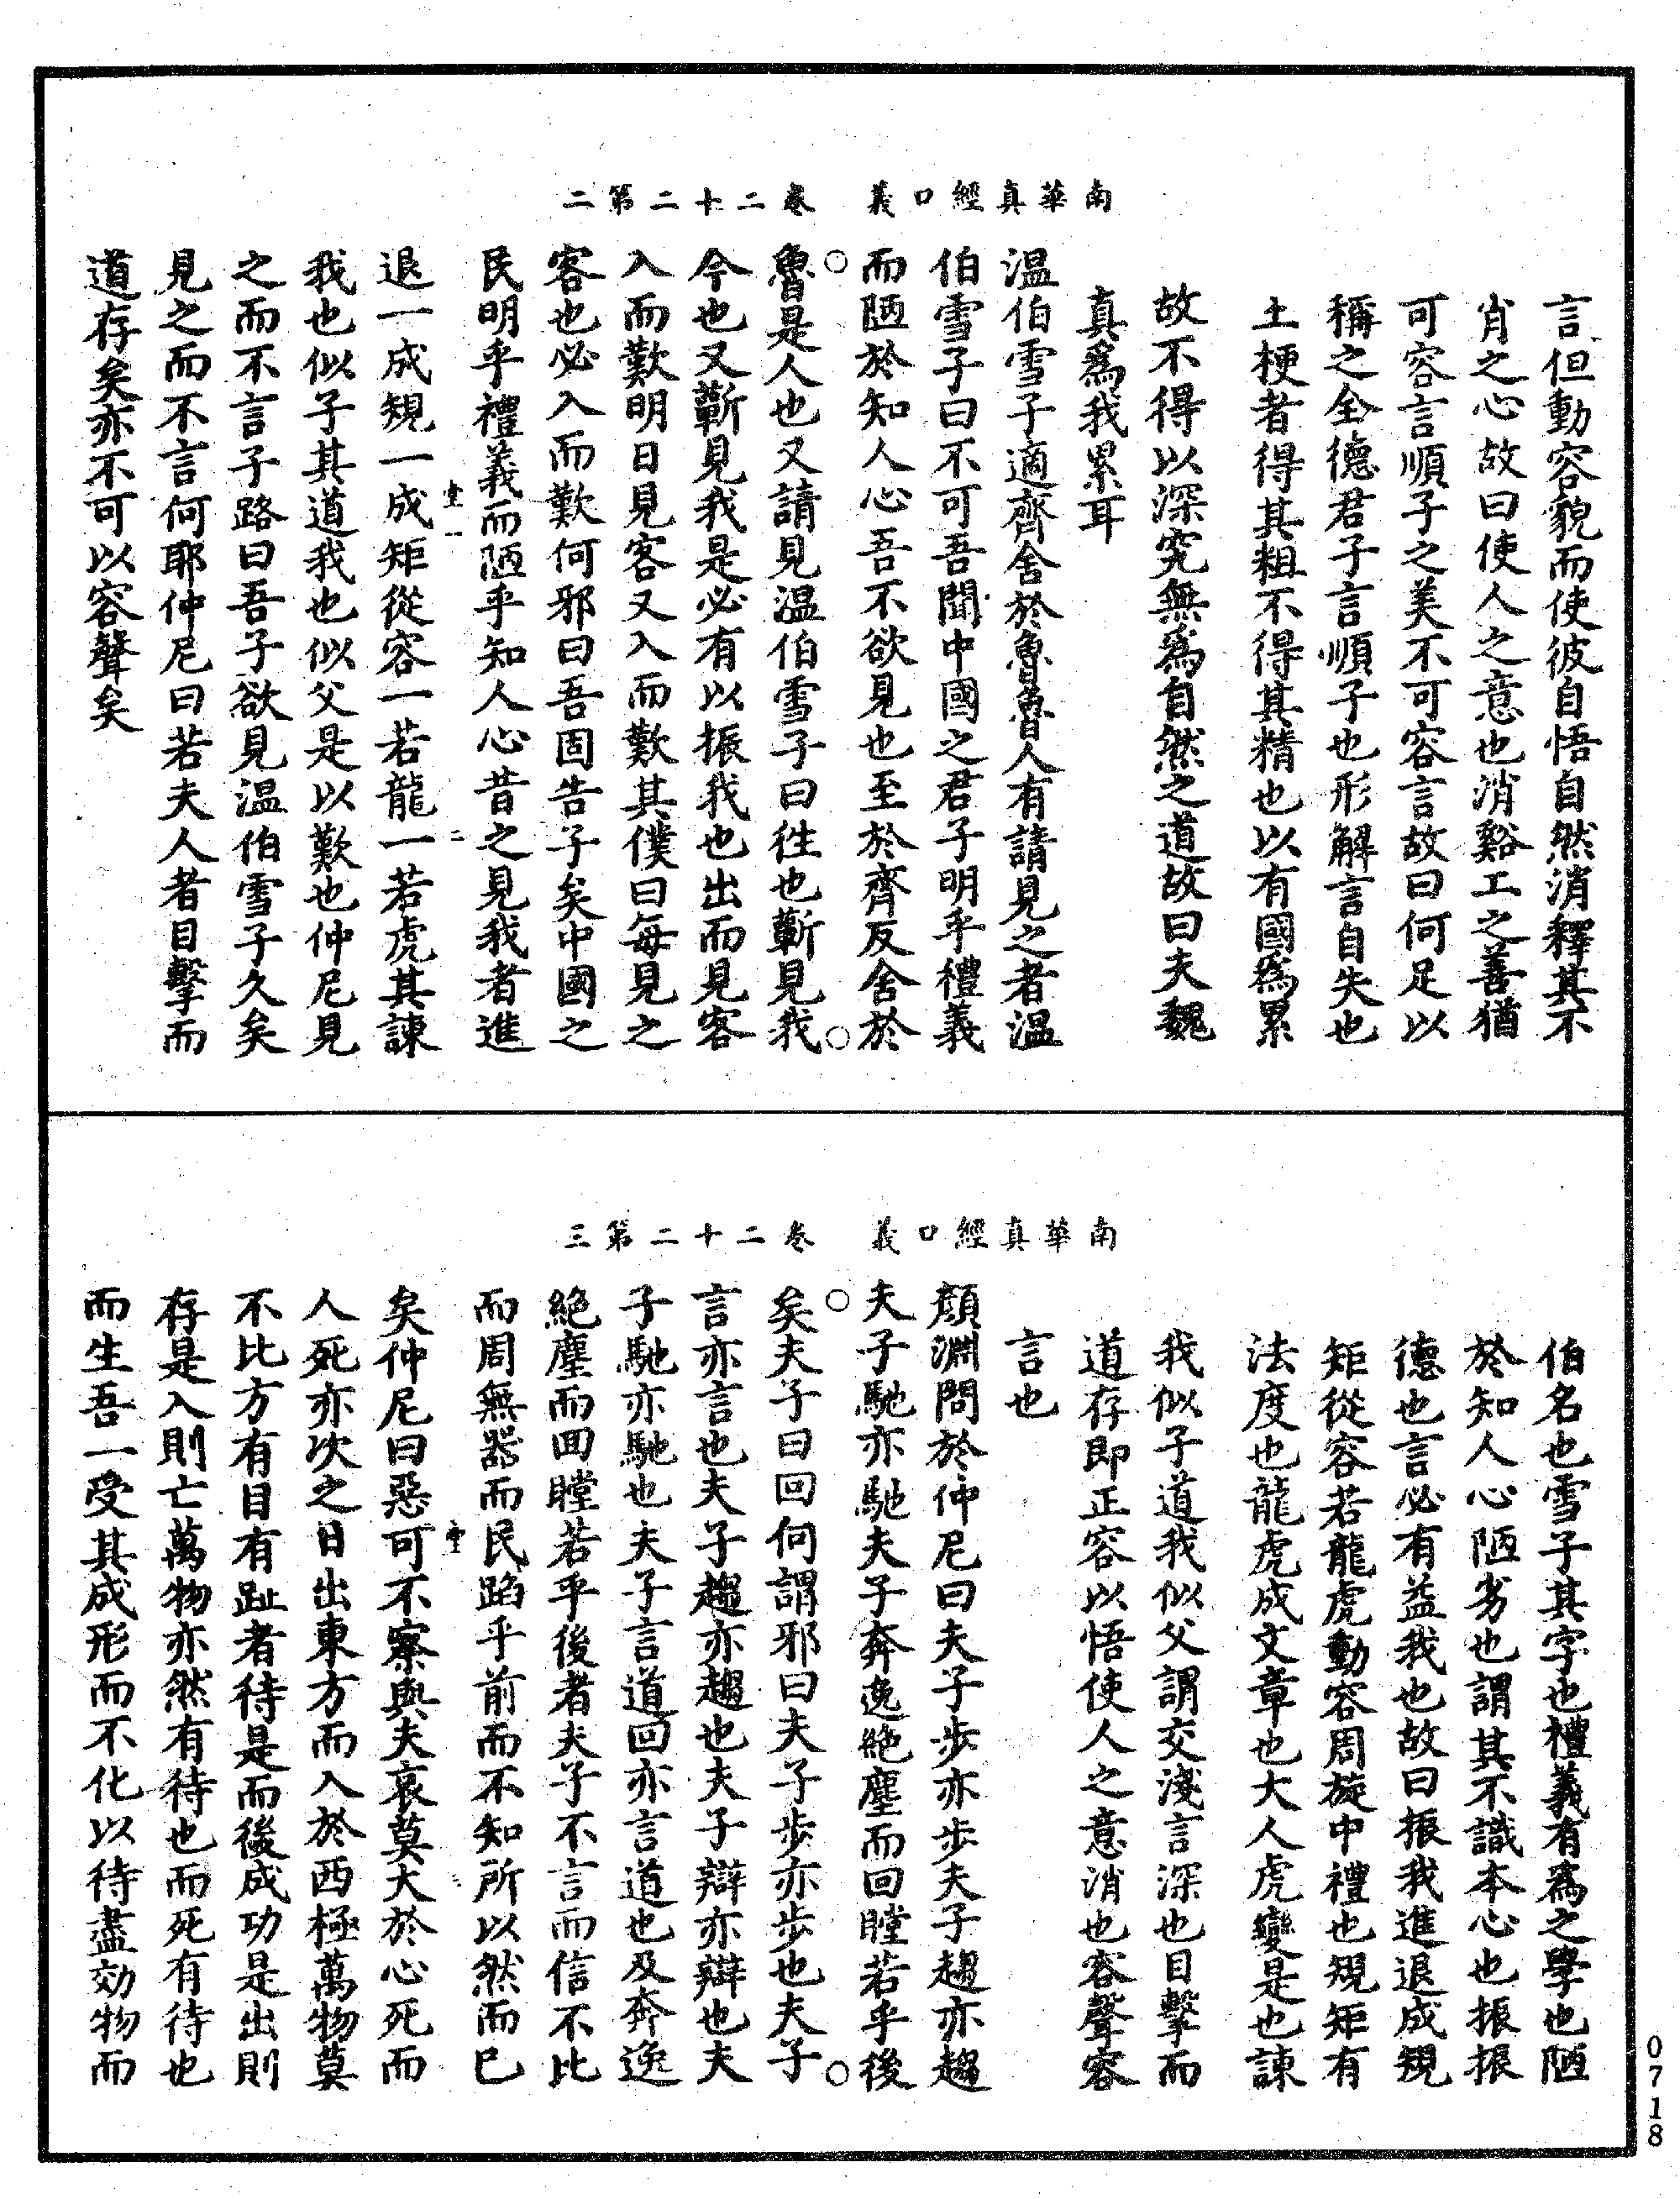 南華真經口義　卷二十二第二
言但動容貌而使彼自悟自然消釋其不
肖之心故曰使人之意也消谿工之善猶
可容言順子之美不可容言故曰何足以
稱之全德君子言順子也形解言自失也
土梗者得其粗不得其精也以有國為累
故不得以深究無為自然之道故曰夫魏
真為我累耳
溫伯雪子適齊舍於魯魯人有請見之者溫
伯雪子曰不可吾聞中國之君子明乎禮義
而陋於知人心吾不欲見也至於齊反舍於
魯是人也又請見溫伯雪子曰往也蘄見我
今也又蘄見我是必有以振我也出而見客
入而歎明日見客又入而歎其僕曰每見之
客也必入而歎何邪曰吾固告子矣中國之
民明乎禮義而陋乎知人心昔之見我者進
堂一
二
退一成規一成矩從容一若龍一若虎其諫
我也似子其道我也似父是以歎也仲尼見
之而不言子路曰吾子欲見溫伯雪子久矣
見之而不言何耶仲尼曰若夫人者目擊而
道存矣亦不可以容聲矣
南華真經口義　卷二十二第三
伯名也雪子其字也禮義有為之學也陋
於知人心陋劣也謂其不識本心也振振
德也言必有益我也故曰振我進退成規
矩從容若龍虎動容周旋中禮也規矩有
法度也龍虎成文章也大人虎變是也諫
我似子道我似父謂交淺言深也目擊而
道存即正容以悟使人之意消也容聲容
言也
顏淵問於仲尼曰夫子步亦步夫子趨亦趨
夫子馳亦馳夫子奔逸絕塵而回瞠若乎後
矣夫子曰回何謂邪曰夫子步亦步也夫子
言亦言也夫子趨亦趨也夫子辯亦辯也夫
子馳亦馳也夫子言道回亦言道也及奔逸
絕塵而回瞠若乎後者夫子不言而信不比
而周無器而民蹈乎前而不知所以然而已
堂
三
矣仲尼曰惡可不察與夫哀莫大於心死而
人死亦次之日出東方而入於西極萬物莫
不比方有目有趾者待是而後成功是出則
存是入則亡萬物亦然有待也而死有待也
而生吾一受其成形而不化以待盡効物而
0718